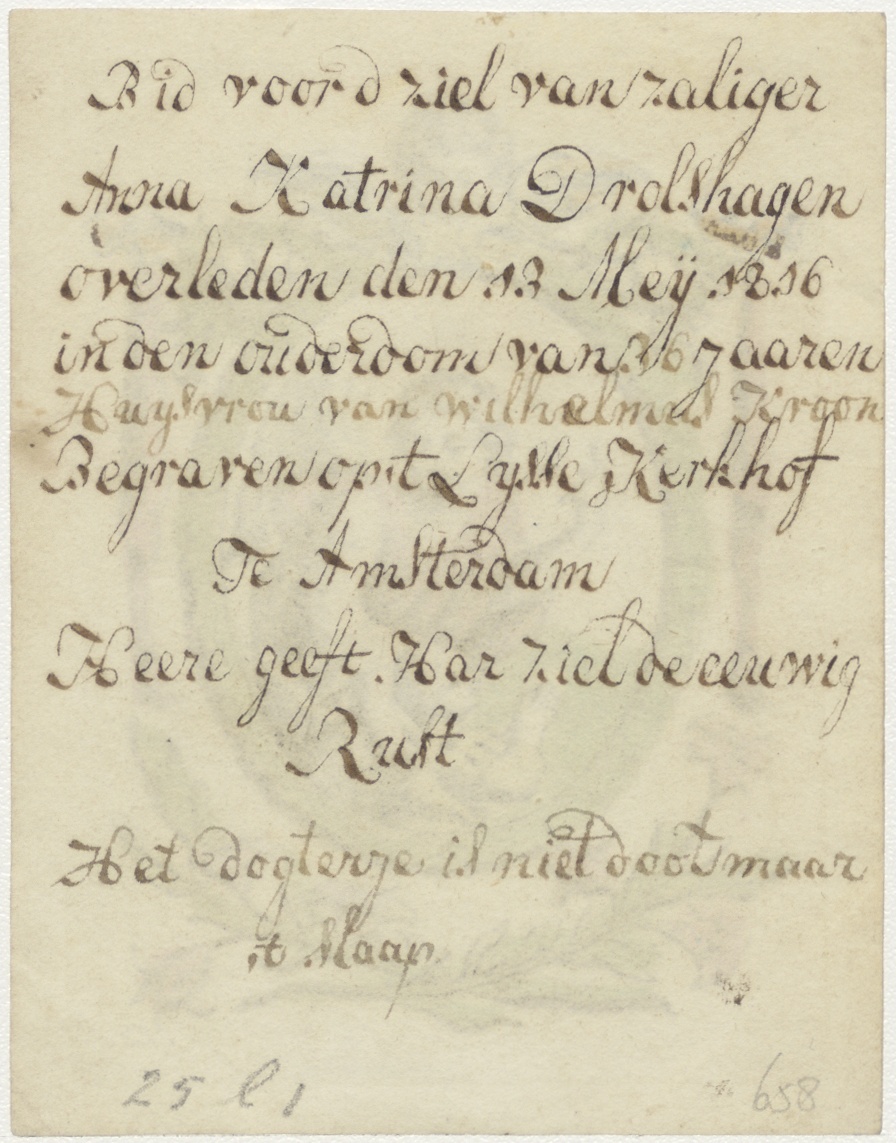 Bid voor d ziel van zaliger
Anna Katrina Drolshagen
overleden den 13 Meÿ 1816
in den ouderdom van 36 jaaren
Huysvrou van wilhelmus Kroon
Begraven op t Lysse Kerkhof
Te Amsterdam
Heere geeft Har ziel de eeuwig
Rust
Het dogterje is niet doot maar
t slaap
25 l 1
658